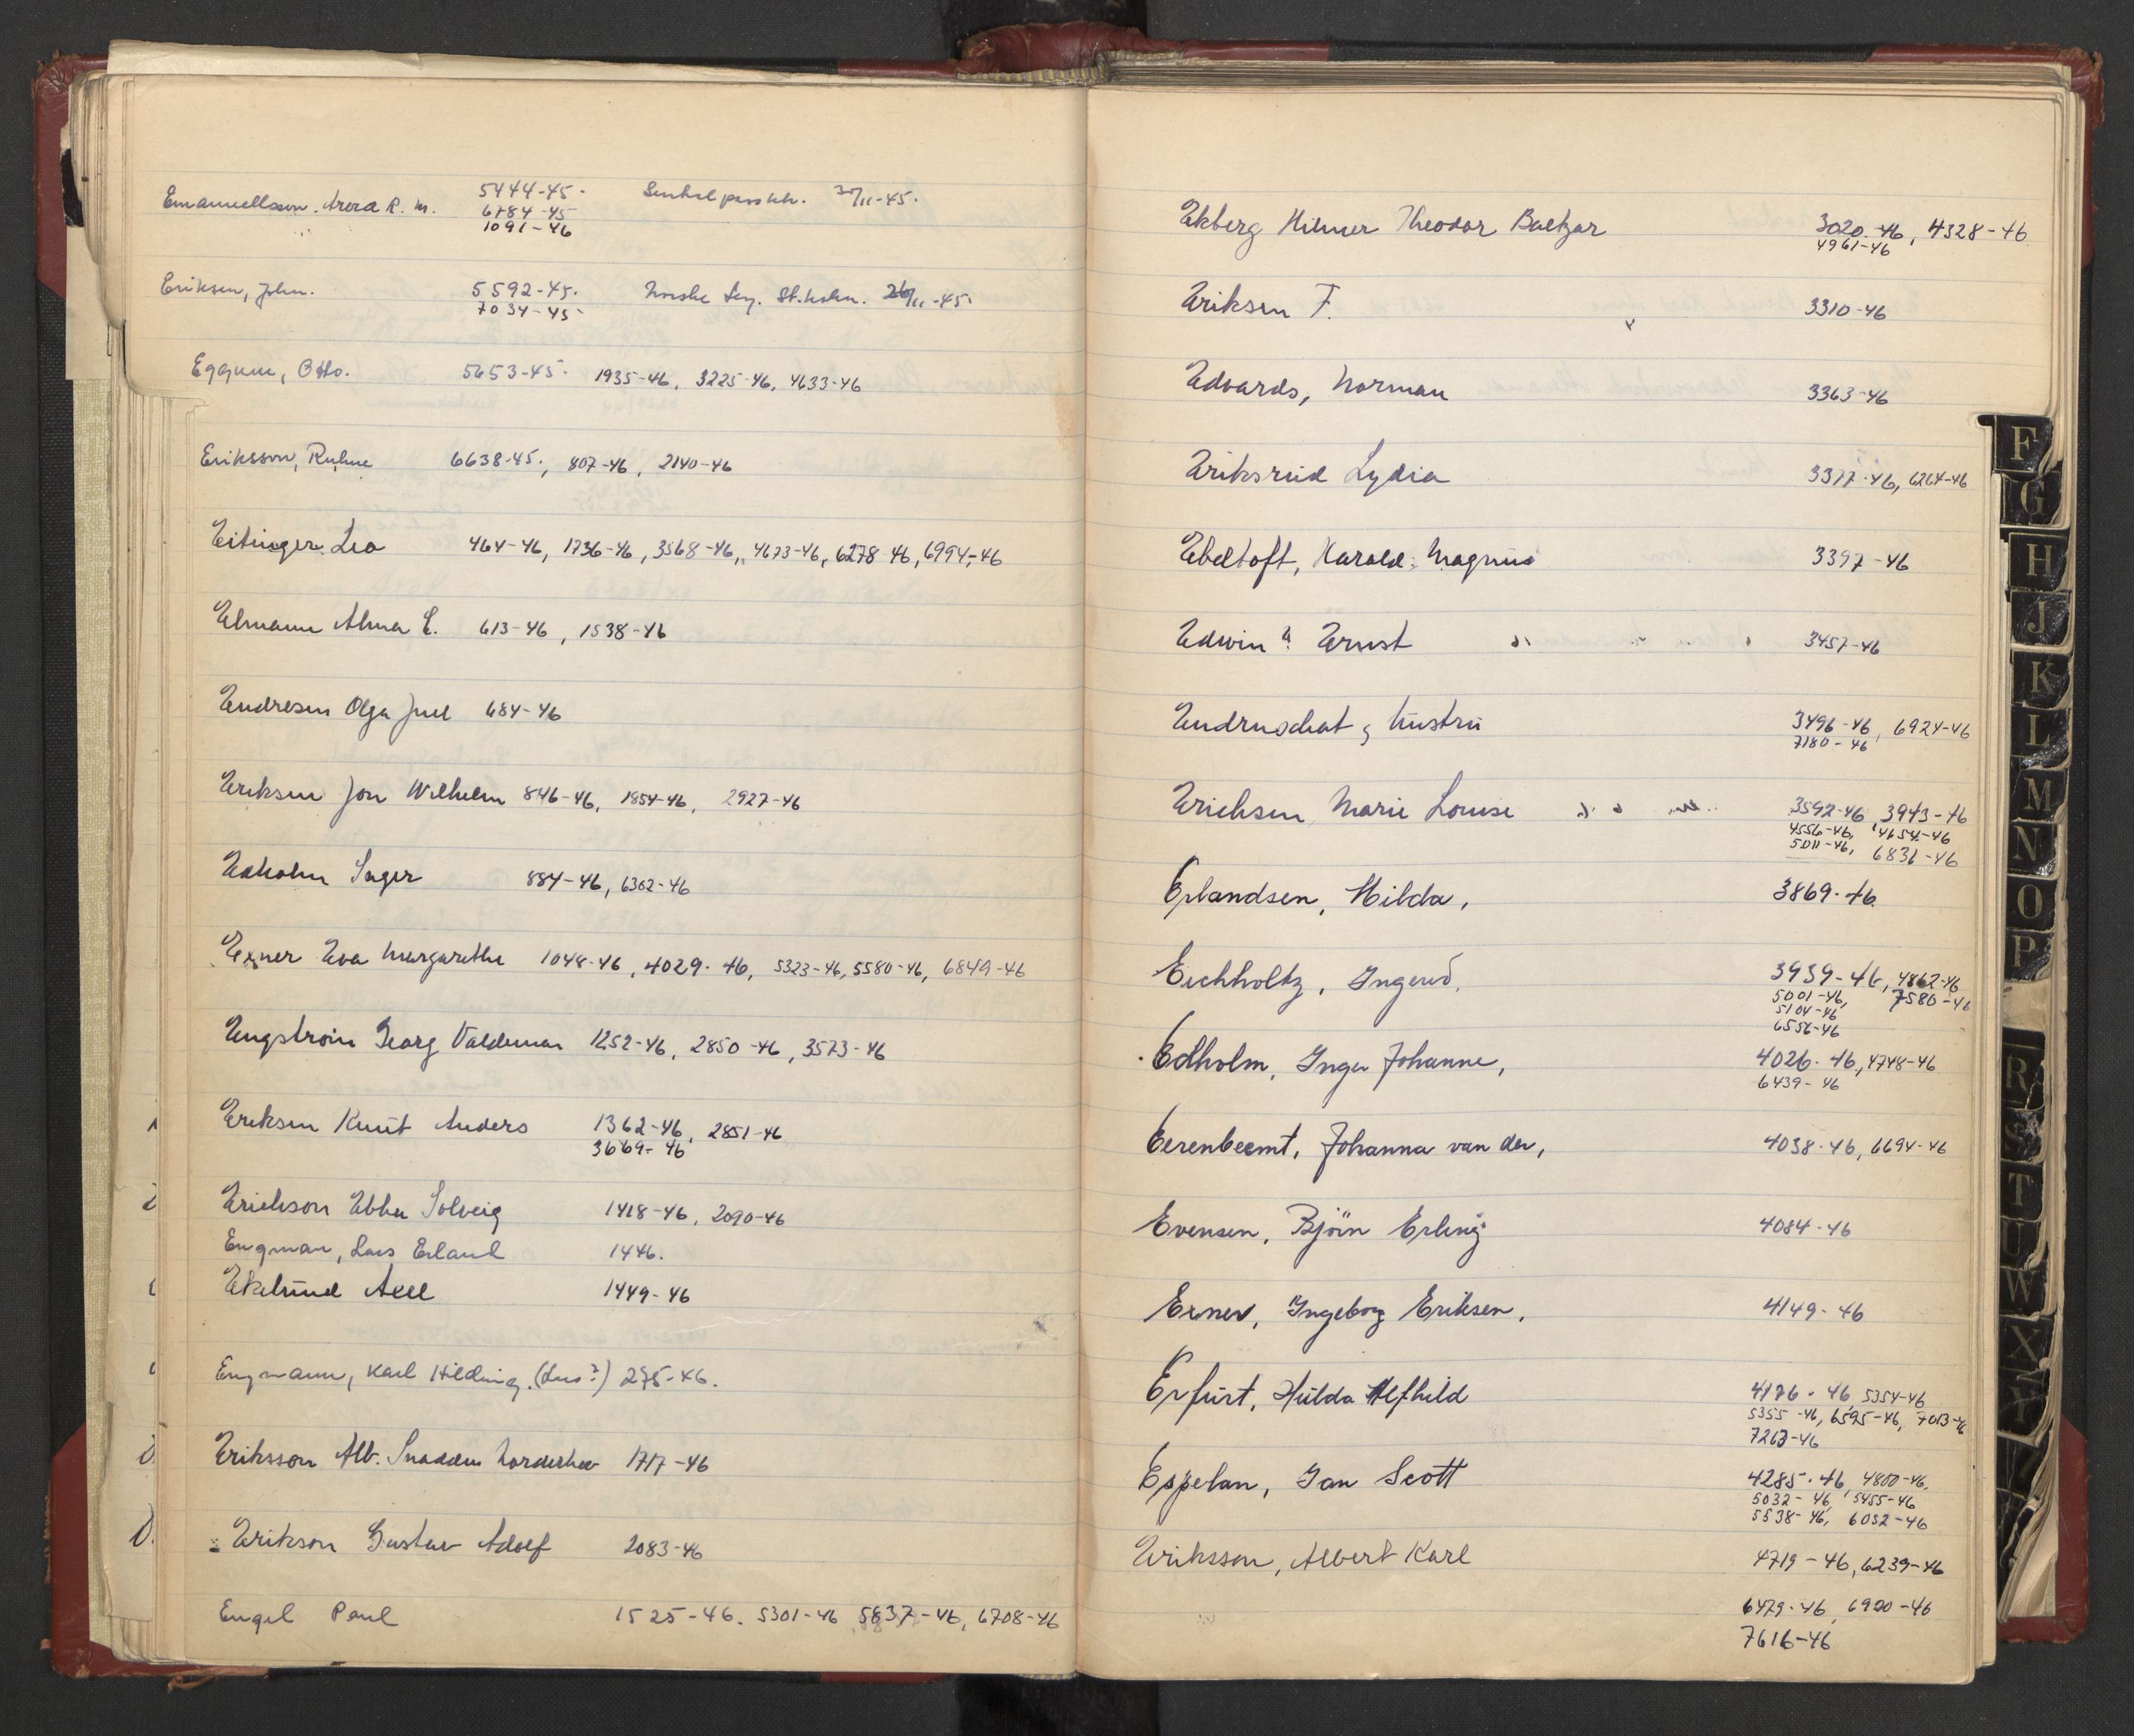 Emanuellson. Arera R. M. 5444-45. Sentralpasskt. 30/11-45.
6784-45
1091-46
Eriksen, John. 5592-45. Norske Leg. St.holm. 26/11-45.
7034-45
Eggum, Otto. 5653-45. 1935-46, 3225-46, 4633-46
Eriksson, Ruhne 6638-45., 807-46, 2140-46
Eitinger Leo 464-46, 1736-46, 3568-46, 4673-46, 6278-46, 6994-46
Elmann Alma E. 613-46, 1538-46
Endresen Olga Juel 684-46
Eriksen Jon Wilhelm 846-46, 1854-46, 2927-46
Edholm Inger 884-46, 6302-46
Exner Eva Margarethe 1048-46, 4029-46, 5323-46, 5580-46, 6849-46
Engström Georg Valdemar 1252-46, 2850-46, 3573-46
Eriksen Knut Anders 1362-46, 2851-46
3669-46
Erichson Ebba Solveig 1418-46, 2090-46
Engman, Lars Erland 1446.
Eklund Axel 1449-46
Engmann, Karl Hilding. (Lars?) 275-46.
Eriksson Alb. 1717-46
Erikson Gustav Adolf 2083-46
Engel Paul 1525-46. 5301-46 5837-46, 6708-46
Ekberg Hilmer Theodor Baltzar 3020-46, 4328-46
4961-46
Eriksen F. 3310-46
Edvards, Norman 3363-46
Eriksrud Lydia 3377-46, 6264-46
Ebeltoft, Harald Magnus 3397-46
Edwin? Ernst 3457-46
Endruschat, Hustru 3496-46, 6924-46
7180-46
Erichsen Marie Louise 3592-46, 3943-46
4556-46, 4654-46
5011-46, 6831-46
Erlandsen, Hilda, 3869-46
Eichholtz, Ingerid. 3939-46, 4862-46
5001-46, 7580-46
5104-46
6556-46
Edholm, Inger Johanne, 4026-46, 4748-46
6439-46
Eerenbeemt, Johanna van der, 4038-46, 6694-46
Evensen, Björn Erling 4084-46
Exner, Ingeborg Eriksen, 4149-46
Erfurt, Hulda Alfhild 4176-46, 5354-46
5355-46, 6595-46, 7013-46
7263-46
Espelan, Jan Scott 4285-46, 4800-46,
5032-46, 5455-46
5538-46, 6052-46
Eriksson, Albert Karl 4719-46, 6239-46
6479-46, 6920-46
7616-46
F
G
H
J
K
L
M
N
O
P
R
S
T
U
W
X
Y